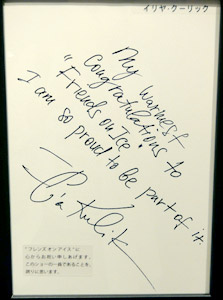 イリヤ・クーリック
My warmest
congratulations to
"Friends on Ice
I am so proud to be part of it.
Ilia Kulik
"フレンズオンアイス"に
心からお祝い申しあげます。
このショーの一員であることを、
誇りに思います。